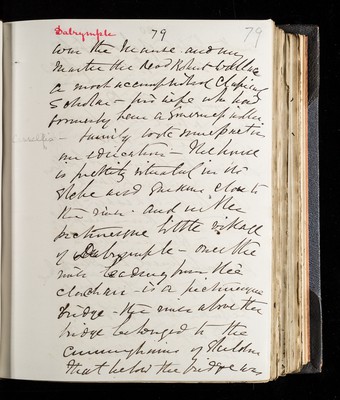 Dalrymple 79 79
was the Manse and my
Master the Revd Robert Wallace
a most accomplished Classical
Scholar – his wife who had
formerly been a Governess in the
family took some part in
my education – The house
is prettily situated in its
Glebe and Gardens close to
the river. and in the
picturesque little village
of Dalrymple – over the
river leading from the
clachan – is a picturesque
bridge – the river above the
bridge belonged to the
Cunninghams of
that below the bridge was